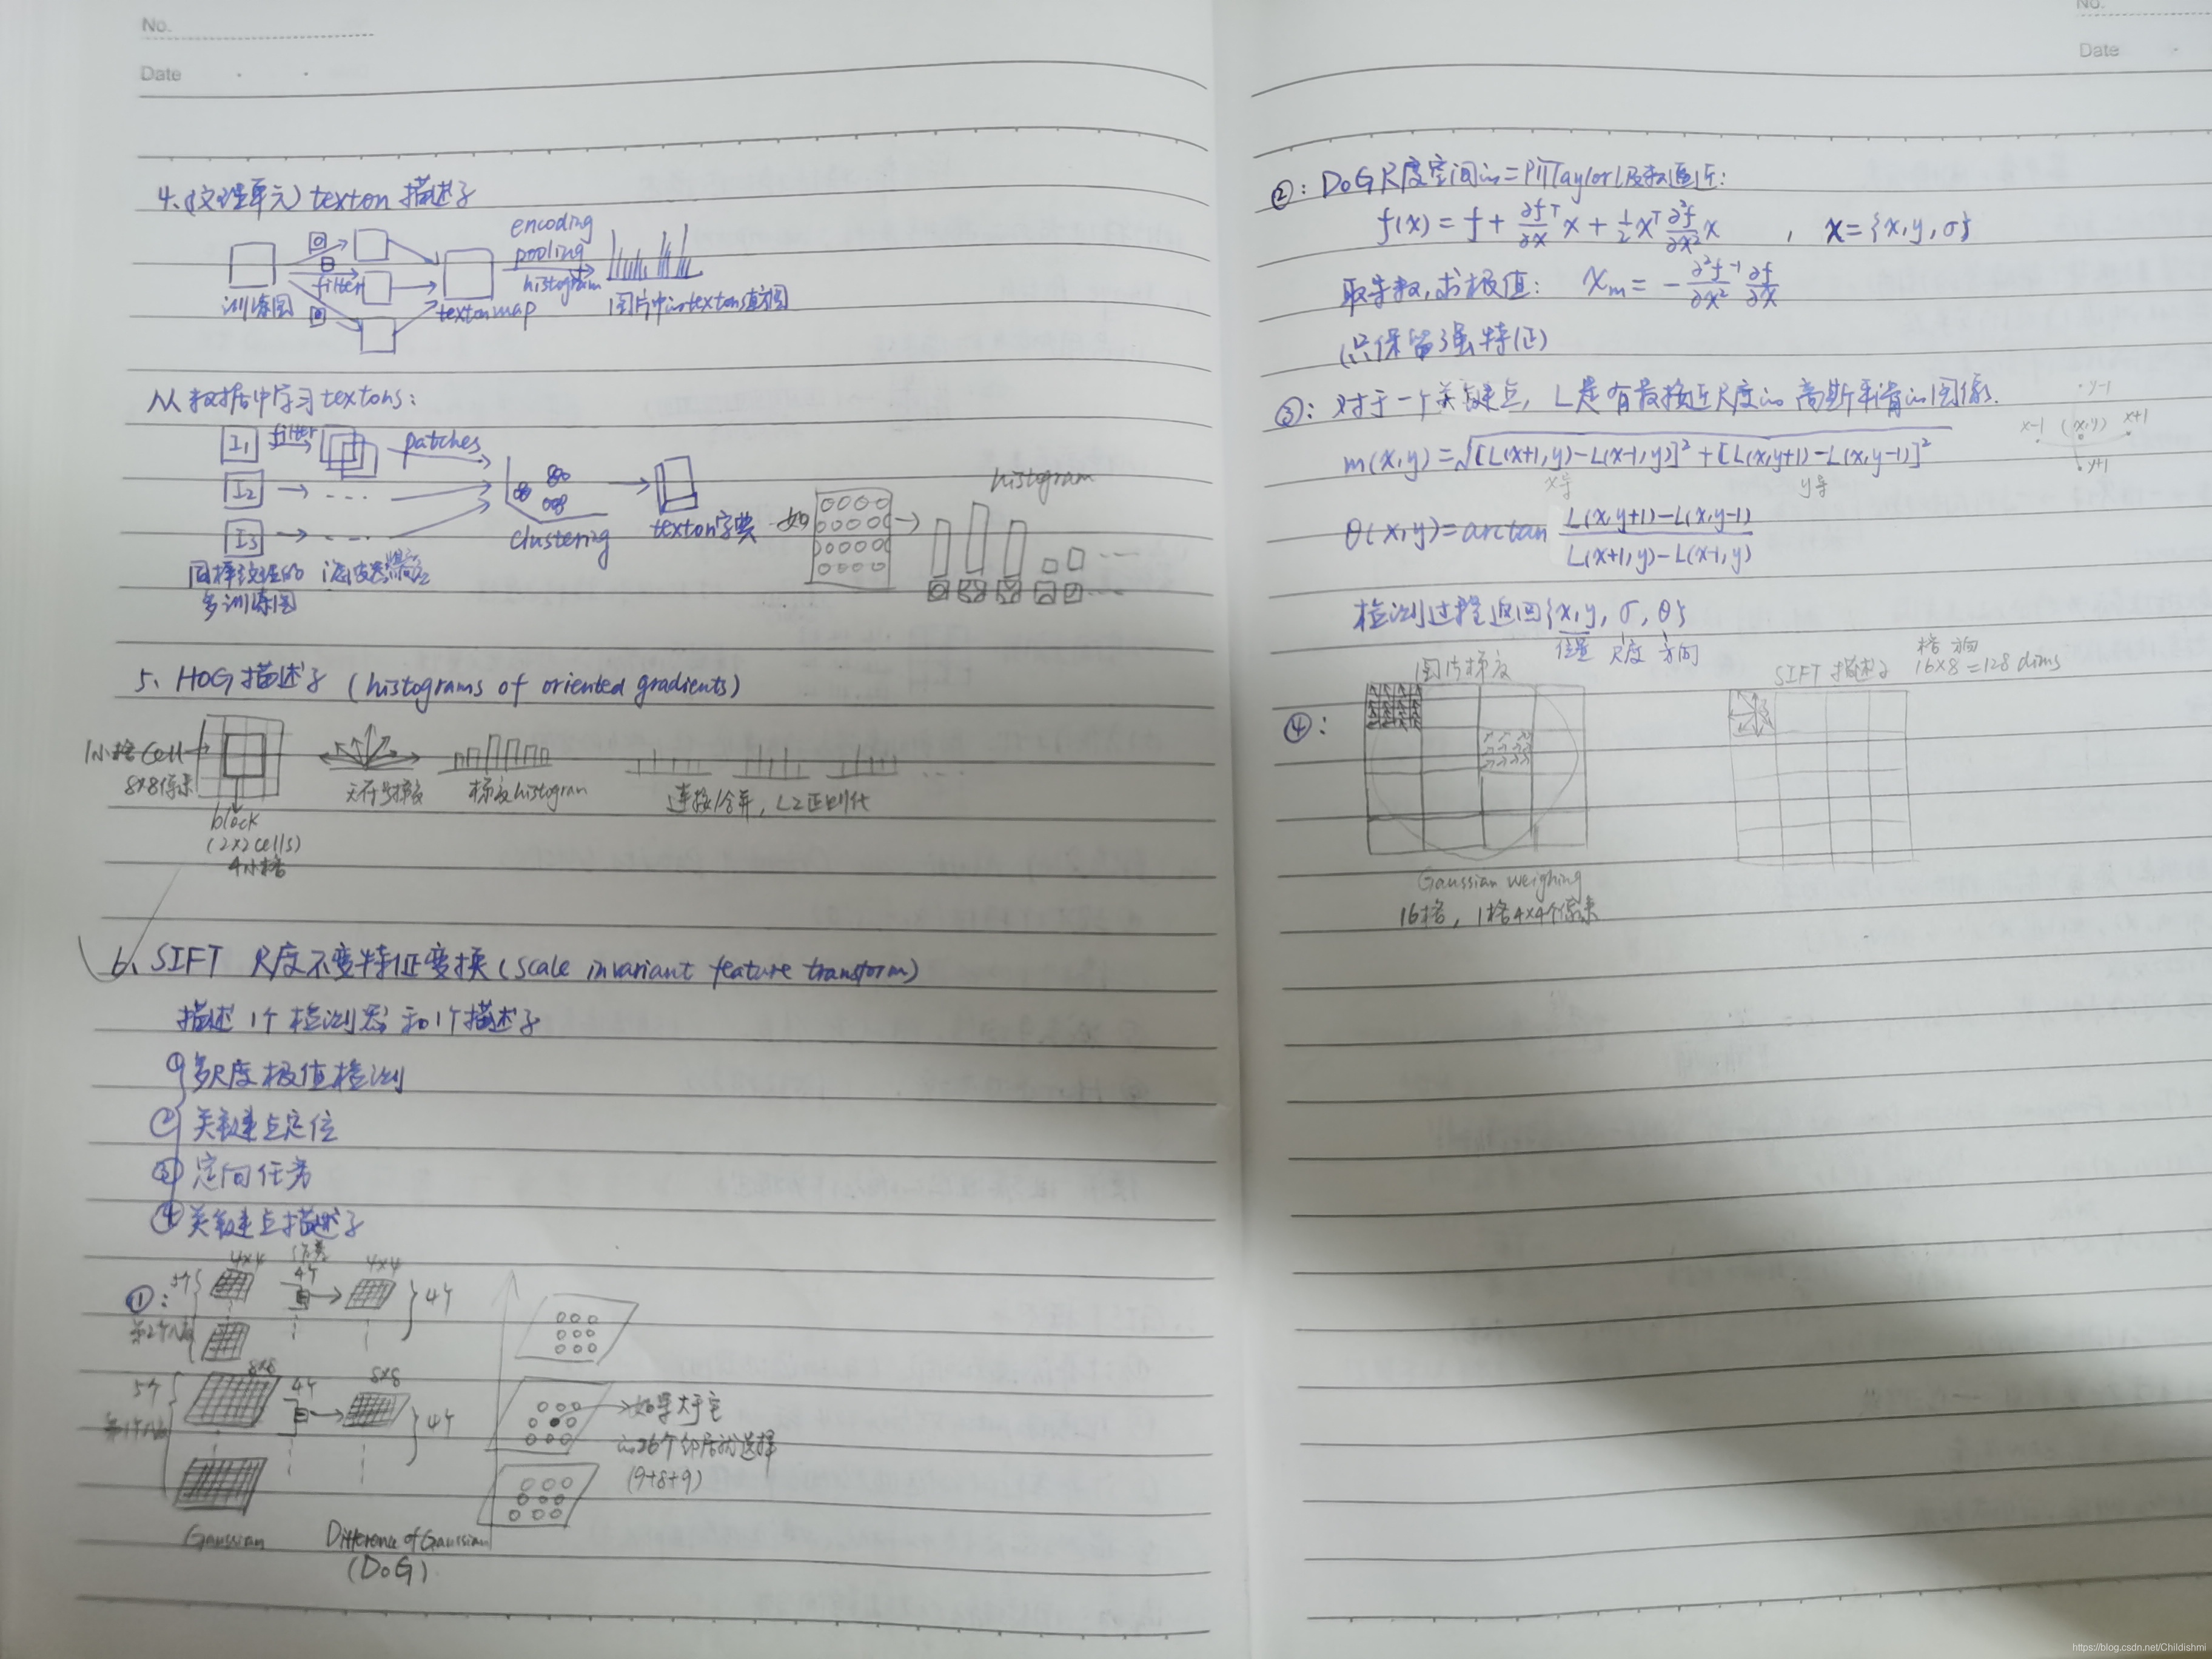 No.
Date
4.(纹理单元) texton 描述子
encoding
pooling
histogram
filter
训练图
texton map
图片中的textons直方图
从数据中学习textons:
I1 filter patches
I2
I3
clustering
texton字典
如
histogram
同样纹理的
多训练图
滤波器响应
5、HOG描述子 (histograms of oriented gradients)
1小格cell
8×8像素
block
(2×2cells)
4小格
无符号梯度
梯度histogram
连接/合并, L2正则化
6、SIFT 尺度不变特征变换 (scale invariant feature transform)
描述1个检测器和1个描述子
①多尺度极值检测
②关键点定位
③定向任务
④关键点描述子
①:
5个
4×4
4个
4×4
4个
5个
8×8
4个
8×8
4个
Gaussian
Difference of Gaussian
(DoG)
如果大于它
的26个邻居就选择
(9+8+9)
No.
Date
②: DoG尺度空间的二阶Taylor级数逼近:
f(x) = f + ∂fᵀ/∂x x + 1/2 xᵀ ∂²f/∂x² x , x={x,y,σ}
取导数,求极值: xm = - ∂²f⁻¹/∂x² ∂f/∂x
(只保留强特征)
③: 对于一个关键点, L是有最接近尺度的高斯平滑的图像.
y-1
x-1 (x,y) x+1
y+1
m(x,y)=√[L(x+1,y)-L(x-1,y)]²+[L(x,y+1)-L(x,y-1)]²
x导
y导
θ(x,y)=arctan L(x,y+1)-L(x,y-1)/L(x+1,y)-L(x-1,y)
检测过程返回{x,y,σ,θ}
位置 尺度 方向
图片梯度
SIFT 描述子
格 方向
16×8=128 dims
④:
Gaussian weighing
16格, 1格4×4个像素
https://blog.csdn.net/Childishmi